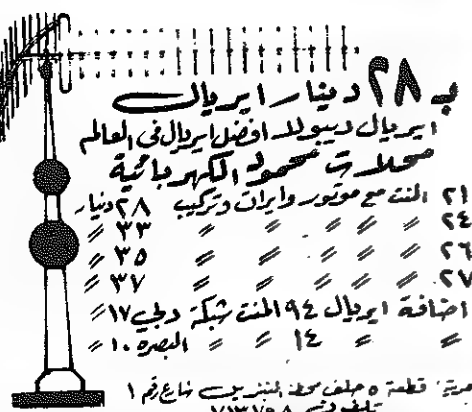 ب ٢٨ دينار ايريال
ايريال ديبولد افضل ايريال في العالم
محلات محمود الكهربائية
٢١ المنت مع موتور وايران وتركيب ٢٨ دينار
٢٤ " " " " " ٣٣ "
٢٦ " " " " " ٣٥ "
٢٧ " " " " " ٣٧ "
اضافة ايريال ٩٤ المنت شبكة دبي ١٧ "
" " ١٤ " " البصره ١٠ "
قطعة ٥ خلف محطة البنزين شارع رقم ١
تليفون